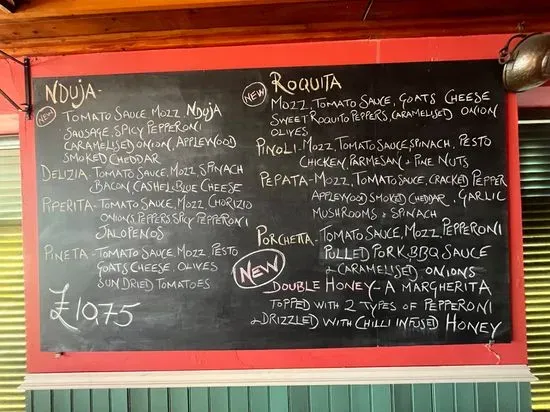 NDUJA-
NEW
TOMATO SAUCE, MOZZ, NDUJA
SAUSAGE, SPICY PEPPERONI
CARAMELISED ONION, APPLEWOOD
SMOKED CHEDDAR
DELIZIA-TOMATO SAUCE, MOZZ, SPINACH
BACON, CASHEL BLUE CHEESE
PIPERITA-TOMATO SAUCE, MOZZ, CHORIZIO
ONIONS, PEPPERS, SPICY PEPPERONI
JALOPENOS
PINETA-TOMATO SAUCE, MOZZ, PESTO
GOATS CHEESE, OLIVES
SUN DRIED TOMATOES
£10.75
ROQUITA
NEW
MOZZ, TOMATO SAUCE, GOATS CHEESE
SWEET ROQUITO PEPPERS, CARAMELISED ONION
OLIVES
PINOLI-MOZZ, TOMATO SAUCE, SPINACH, PESTO
CHICKEN, PARMESAN + PINE NUTS
PEPATA-MOZZ, TOMATO SAUCE, CRACKED PEPPER
APPLEWOOD SMOKED CHEDDAR, GARLIC
MUSHROOMS & SPINACH
PORCHETTA-TOMATO SAUCE, MOZZ, PEPPERONI
PULLED PORK, BBQ SAUCE
& CARAMELISED ONIONS
NEW
DOUBLE HONEY-A MARGHERITA
TOPPED WITH 2 TYPES OF PEPPERONI
& DRIZZLED WITH CHILLI INFUSED HONEY